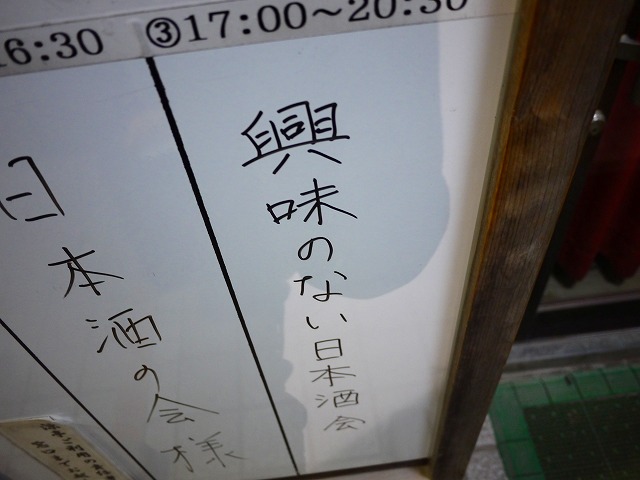 16:30
③17:00～20:30
興味のない日本酒会
日本酒の会様